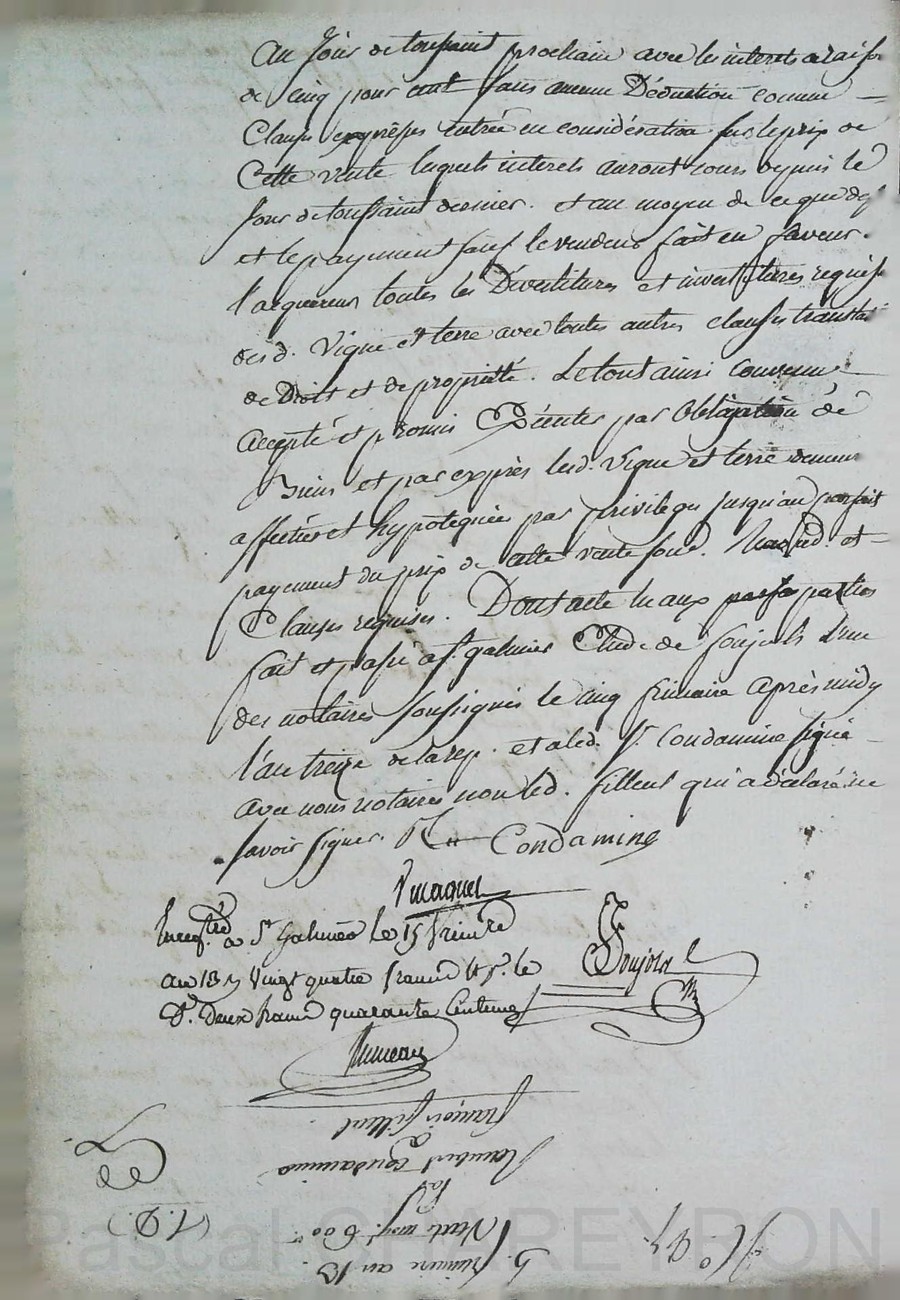 Au jour de toussaint prochain avec les interets a raison
de cinq pour cent sans aucune Déduction comme
Clause expresse entrée en considération sur le prix de
Cette vente lesquels interets auront cours depuis le
jour de toussaint dernier. et au moyen de ce que dessus
et le payement sauf le vendeur fait en faveur
l'acquereur toutes les Dévestitures et investitures requises
desd. Vigne et terre avec toutes autres clauses
de Droits et de propriété. Le tout ainsi convenu
accepté et promis Exécuter par Obligation de
Biens et par exprès lesd. Vigne et terre demeurent
affectées et hypotequées par privilege jusqu'au parfait
payement du prix de cette vente et
Clauses requises. Dont acte lu aux parties
fait et passé a St. galmier Etude de Soujols l'un
des notaires soussignés le cinq frimaire après midy
l'an treize de la rep. et a led. Sr. Condamine signé
avec nous notaires non led. filleul qui a déclaré ne
savoir signer.
Condamine
Enregtré a St Galmier le 15 frimre
an 13 vingt quatre francs
Deux francs quarante Centimes
Soujols
françois filleul
a
Rambert Condamine
Vente moy. 600
5. frimaire an 13.